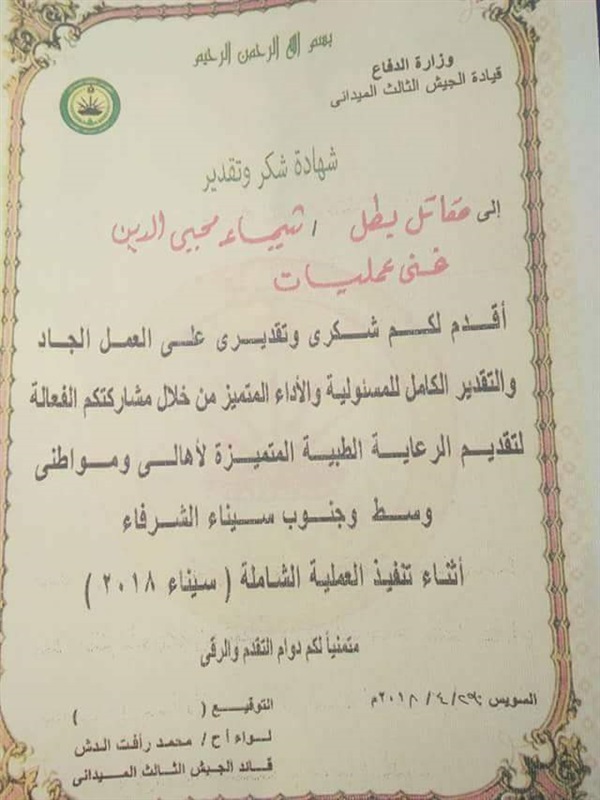 بسم الله الرحمن الرحيم
وزارة الدفاع
قيادة الجيش الثالث الميدانى
شهادة شكر وتقدير
إلى مقاتل بطل / شيماء محيى الدين
فنى عمليات
أقدم لكم شكرى وتقديرى على العمل الجاد
والتقدير الكامل للمسئولية والأداء المتميز من خلال مشاركتكم الفعالة
لتقديم الرعاية الطبية المتميزة لأهالى ومواطنى
وسط وجنوب سيناء الشرفاء
أثناء تنفيذ العملية الشاملة ( سيناء ٢٠١٨ )
متمنياً لكم دوام التقدم والرقى
السويس / ٤ / ٢٠١٨م
التوقيع ( )
لواء أ ح / محمد رأفت الدش
قائد الجيش الثالث الميدانى